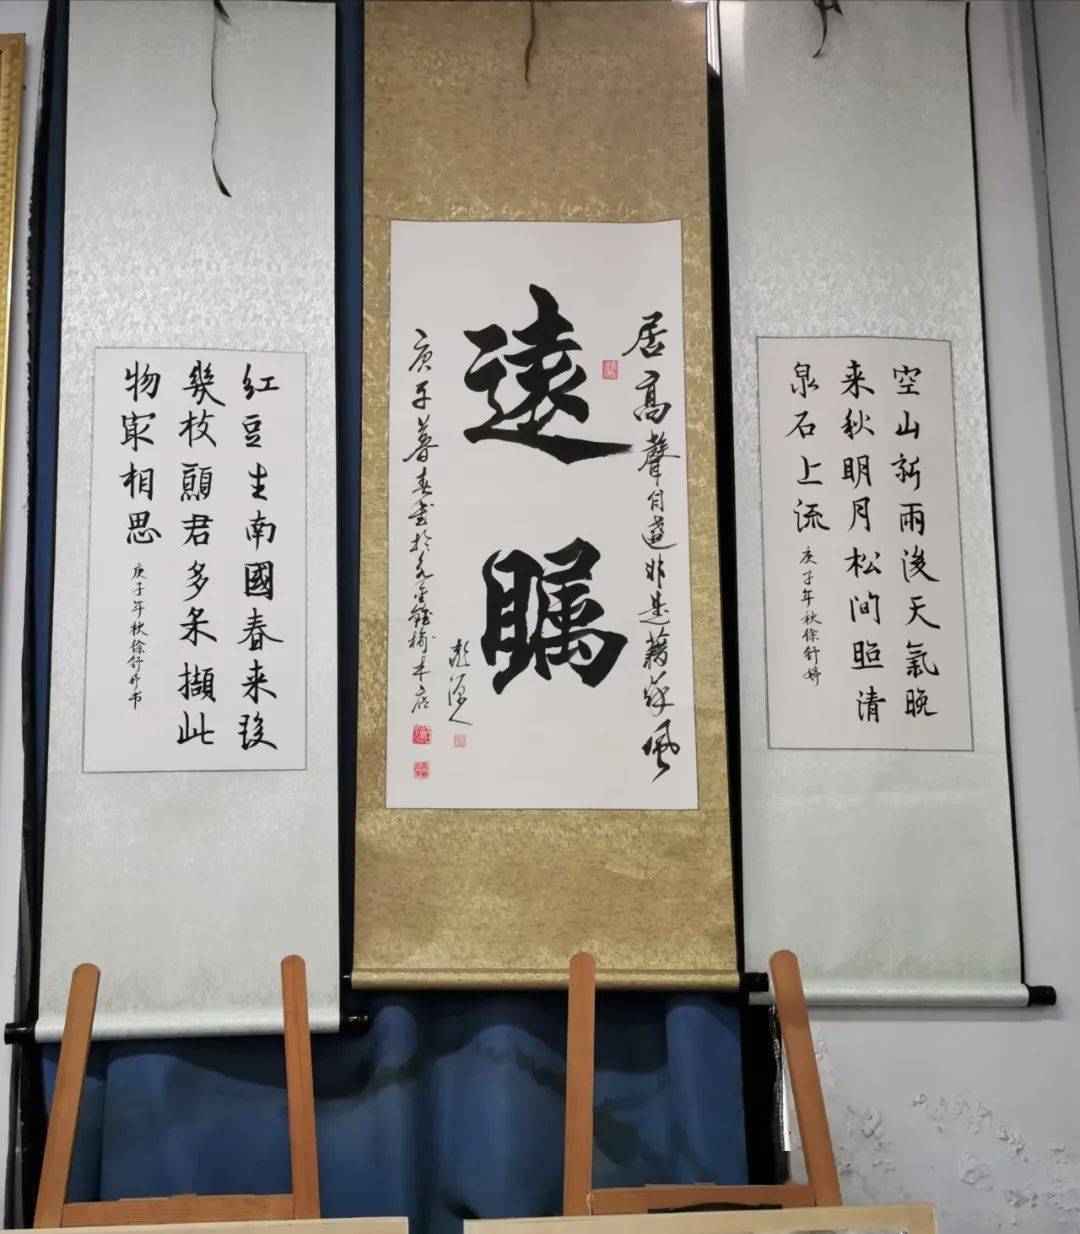 空山新雨後天氣晚
来秋明月松间照清
泉石上流
庚子年秋徐舒婷
居高聲自遠非是藉秋風
遠瞩
庚子暮春書於
红豆生南國春来發
幾枝願君多采擷此
物最相思
庚子年秋徐舒婷书